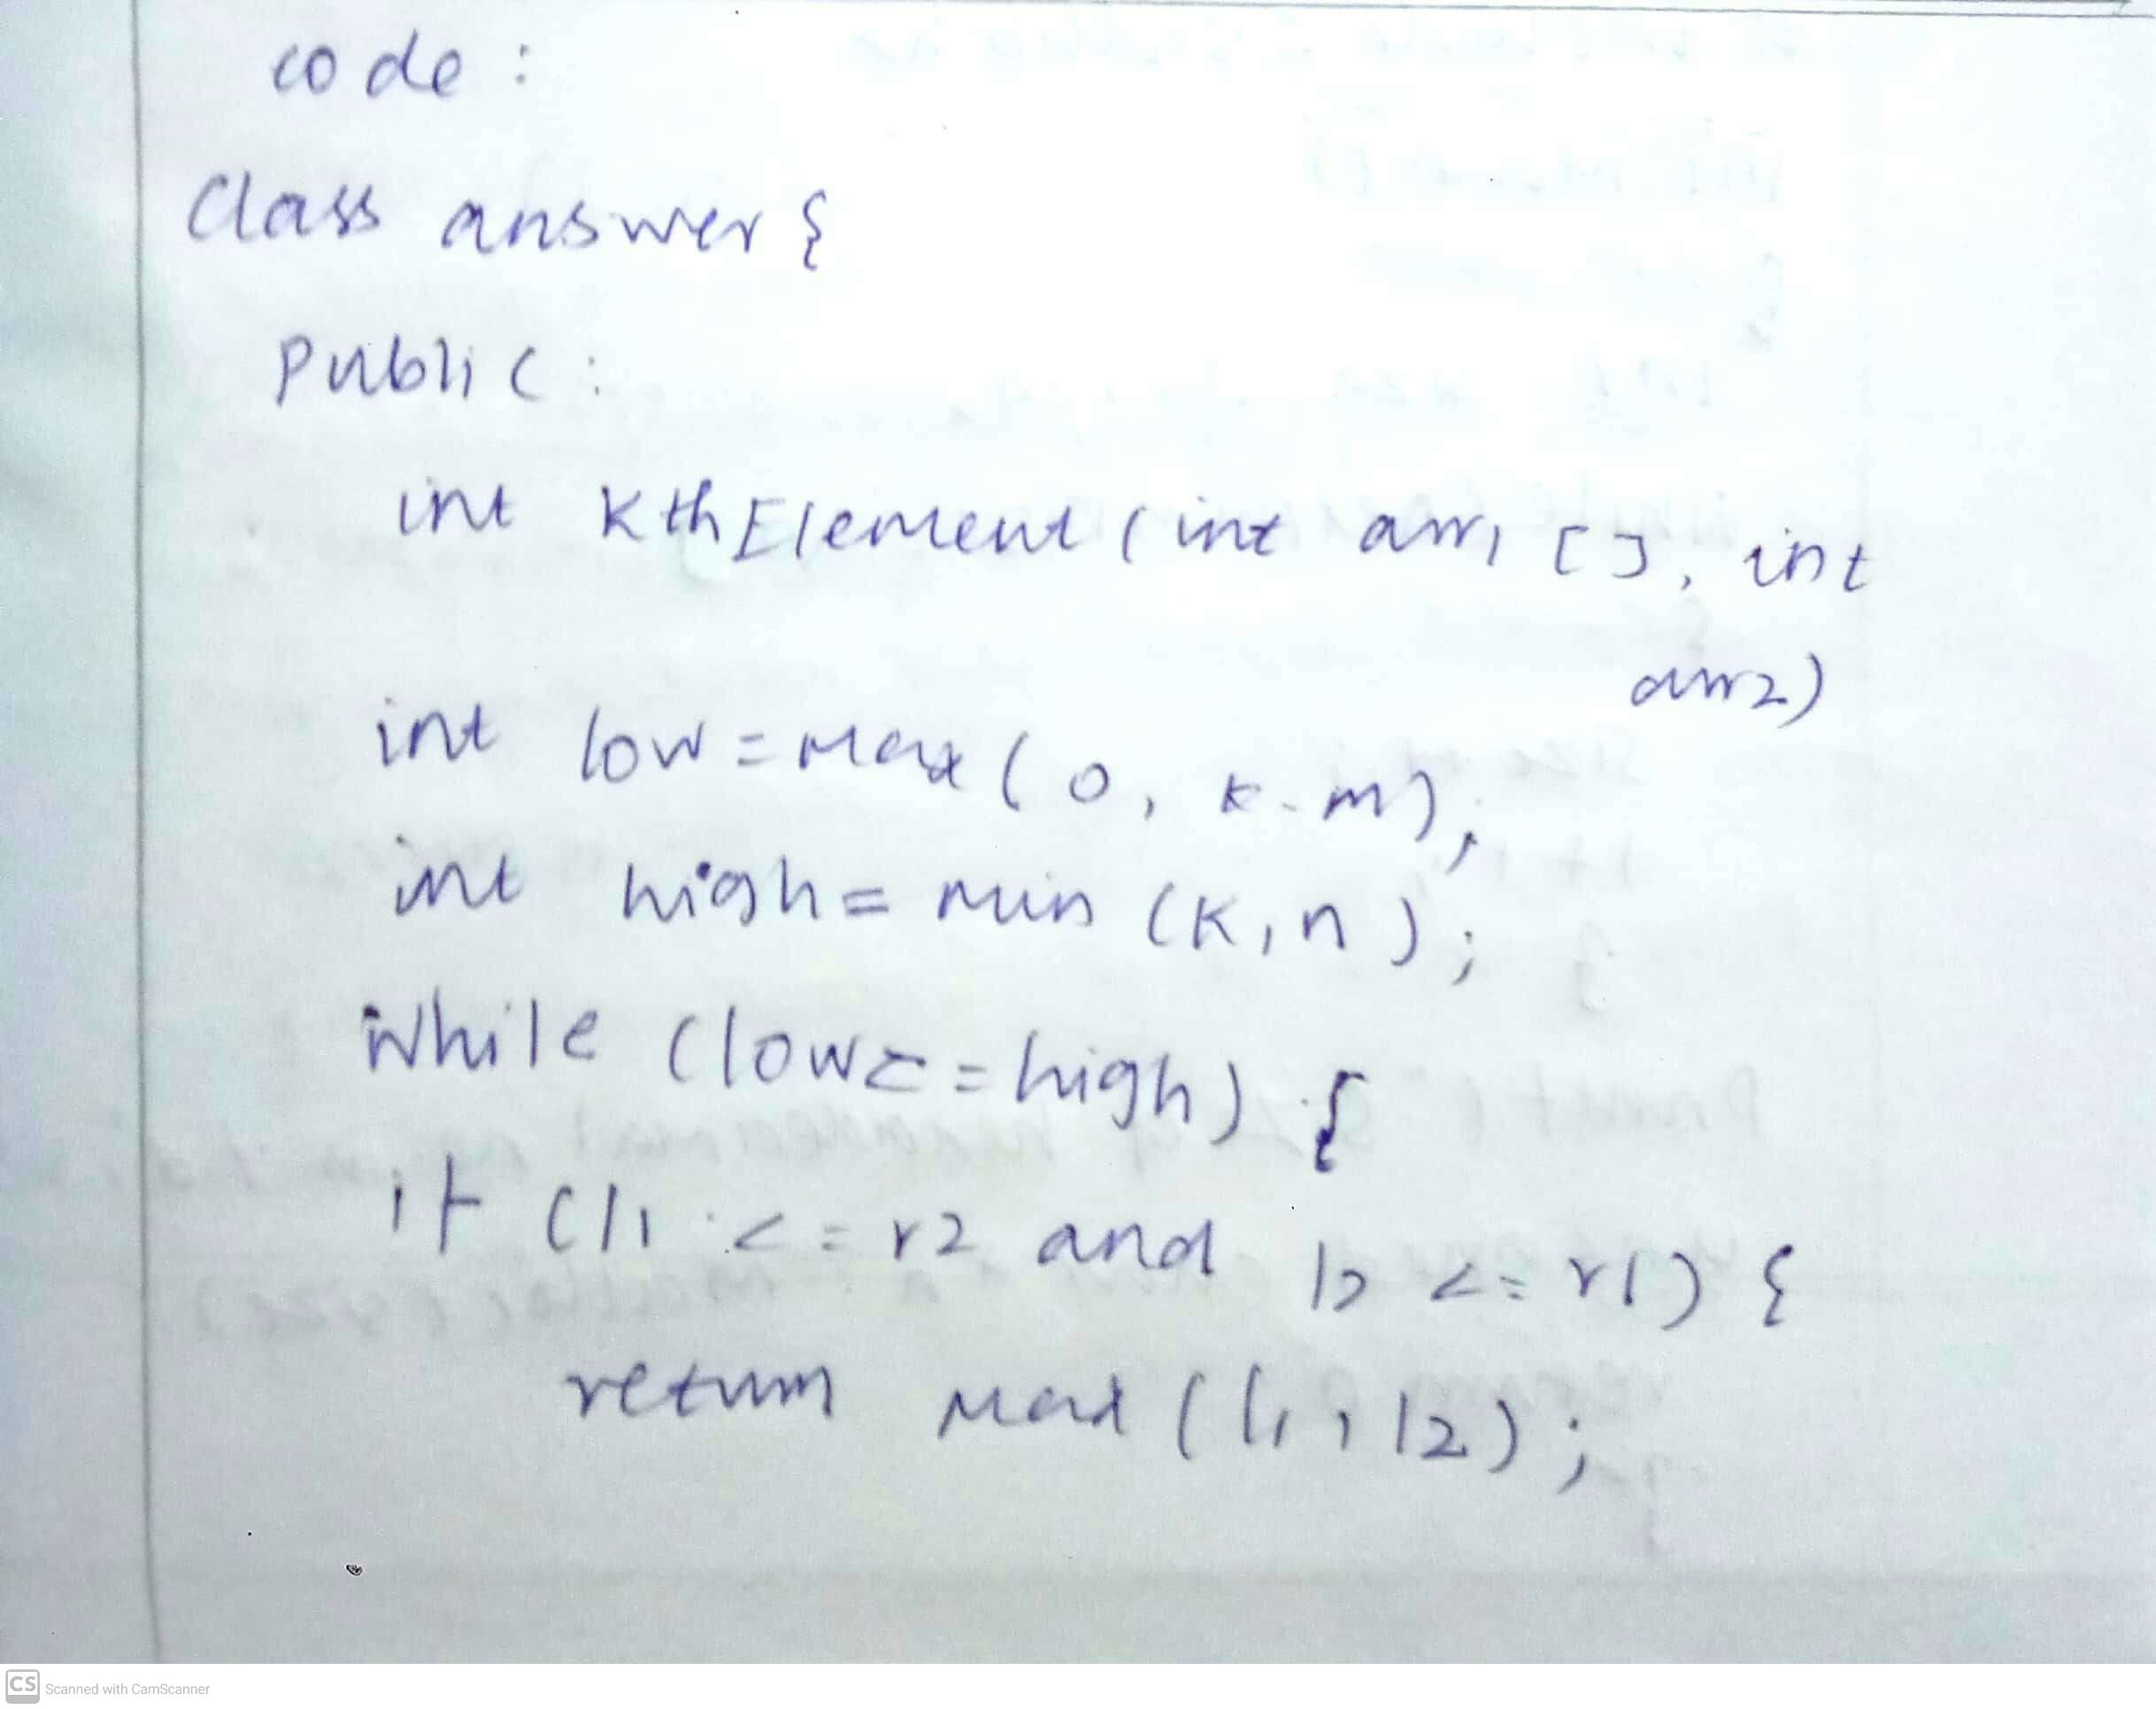 code :
Class answer {
Public :
int KthElement ( int arr1 [ ], int
arr2)
int low = Max ( 0, k-m);
int high = min (K, n );
While (low <= high) {
if (l1 <= r2 and l2 <= r1) {
return Max ( l1, l2 );
CS Scanned with CamScanner